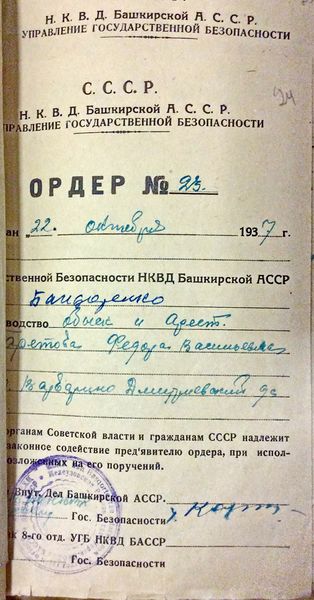 Н. К. В. Д. Башкирской А. С. С. Р.
УПРАВЛЕНИЕ ГОСУДАРСТВЕННОЙ БЕЗОПАСНОСТИ
С. С. С. Р.
Н. К. В. Д. Башкирской А. С. С. Р.
УПРАВЛЕНИЕ ГОСУДАРСТВЕННОЙ БЕЗОПАСНОСТИ
ОРДЕР № 23
ан 22 октября 1937 г.
ственной Безопасности НКВД Башкирской АССР
водство обыск и Арест.
Федора Васильевича
Варварино
органам Советской власти и гражданам СССР надлежит
законное содействие пред'явителю ордера, при испол-
возложенных на его поручений.
Внут. Дел Башкирской АССР.
Гос. Безопасности
к 8-го отд. УГБ НКВД БАССР
Гос. Безопасности